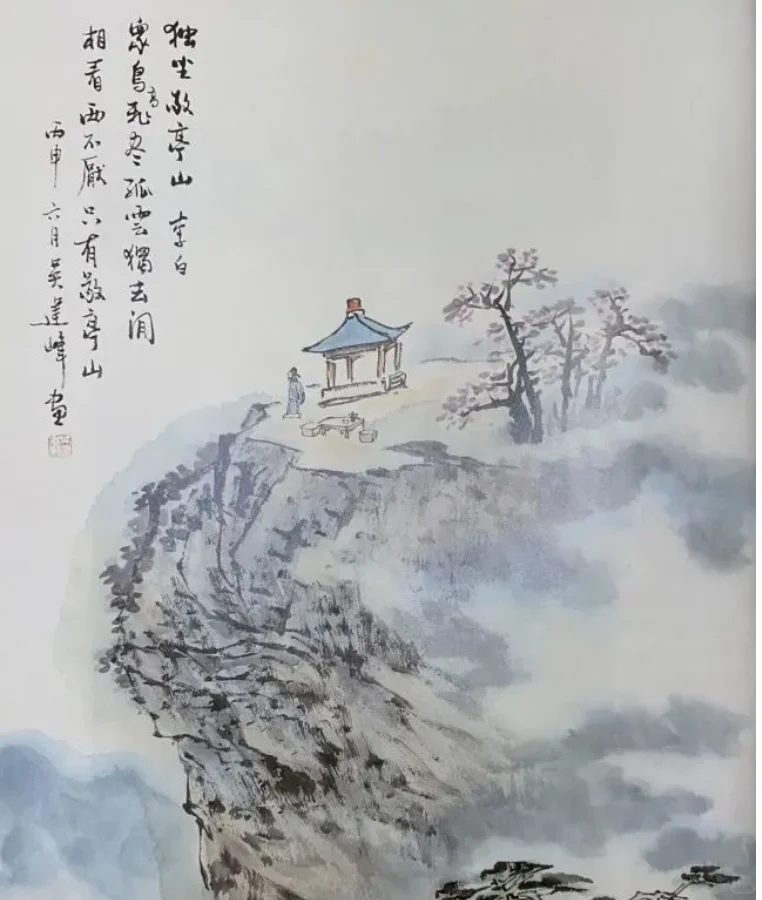 独坐敬亭山 李白
众鸟高飞尽孤雲獨去闲
相看两不厭只有敬亭山
丙申六月吴建峰画